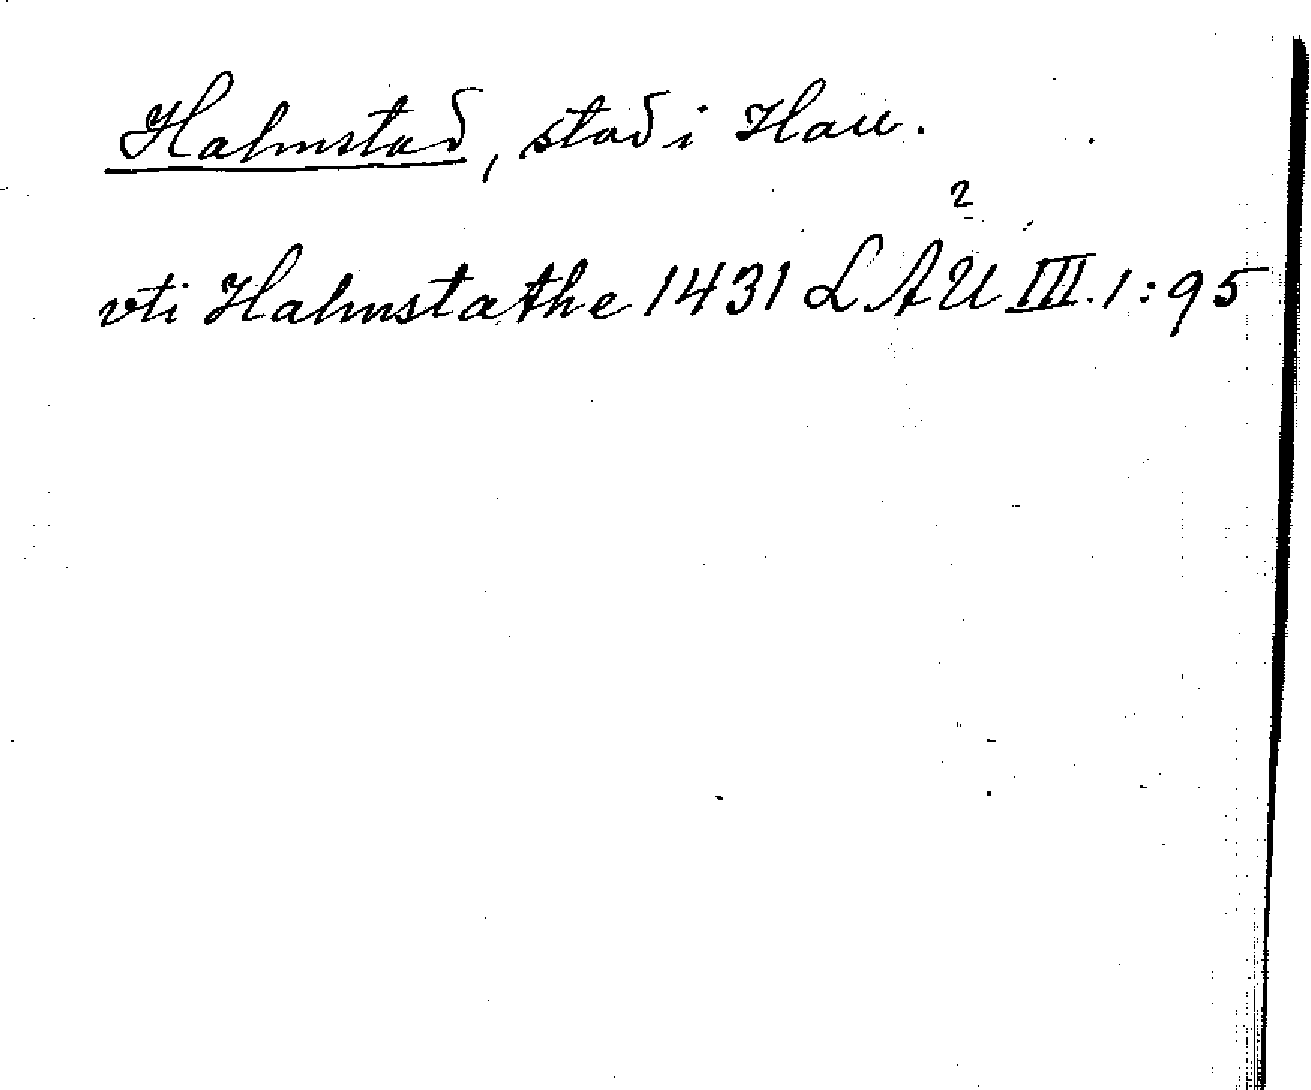 Halmstad, stad i Hall.
2
vti Halmstathe 1431 LAU III.1:95